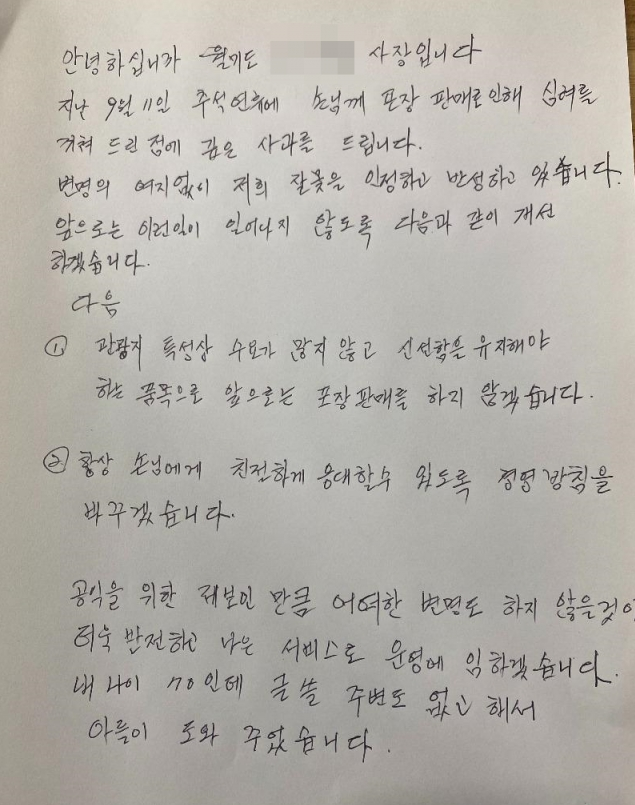 안녕하십니까 월미도 사장입니다
지난 9월 11일 추석연휴에 손님께 포장 판매로 인해 심려를
끼쳐 드린 점에 깊은 사과를 드립니다.
변명의 여지없이 저희 잘못을 인정하고 반성하고 있습니다.
앞으로는 이런일이 일어나지 않도록 다음과 같이 개선
하겠습니다.
다음
① 관광지 특성상 수요가 많지 않고 신선함을 유지해야
하는 품목으로 앞으로는 포장판매를 하지 않겠습니다.
② 항상 손님에게 친절하게 응대할수 있도록 경영방침을
바꾸겠습니다.
공익을 위한 제보인 만큼 어떠한 변명도 하지 않을것이
더욱 발전하고 나은 서비스로 운영에 임하겠습니다.
내 나이 70인데 글 쓸 주변도 없고 해서
아들이 도와 주었습니다.